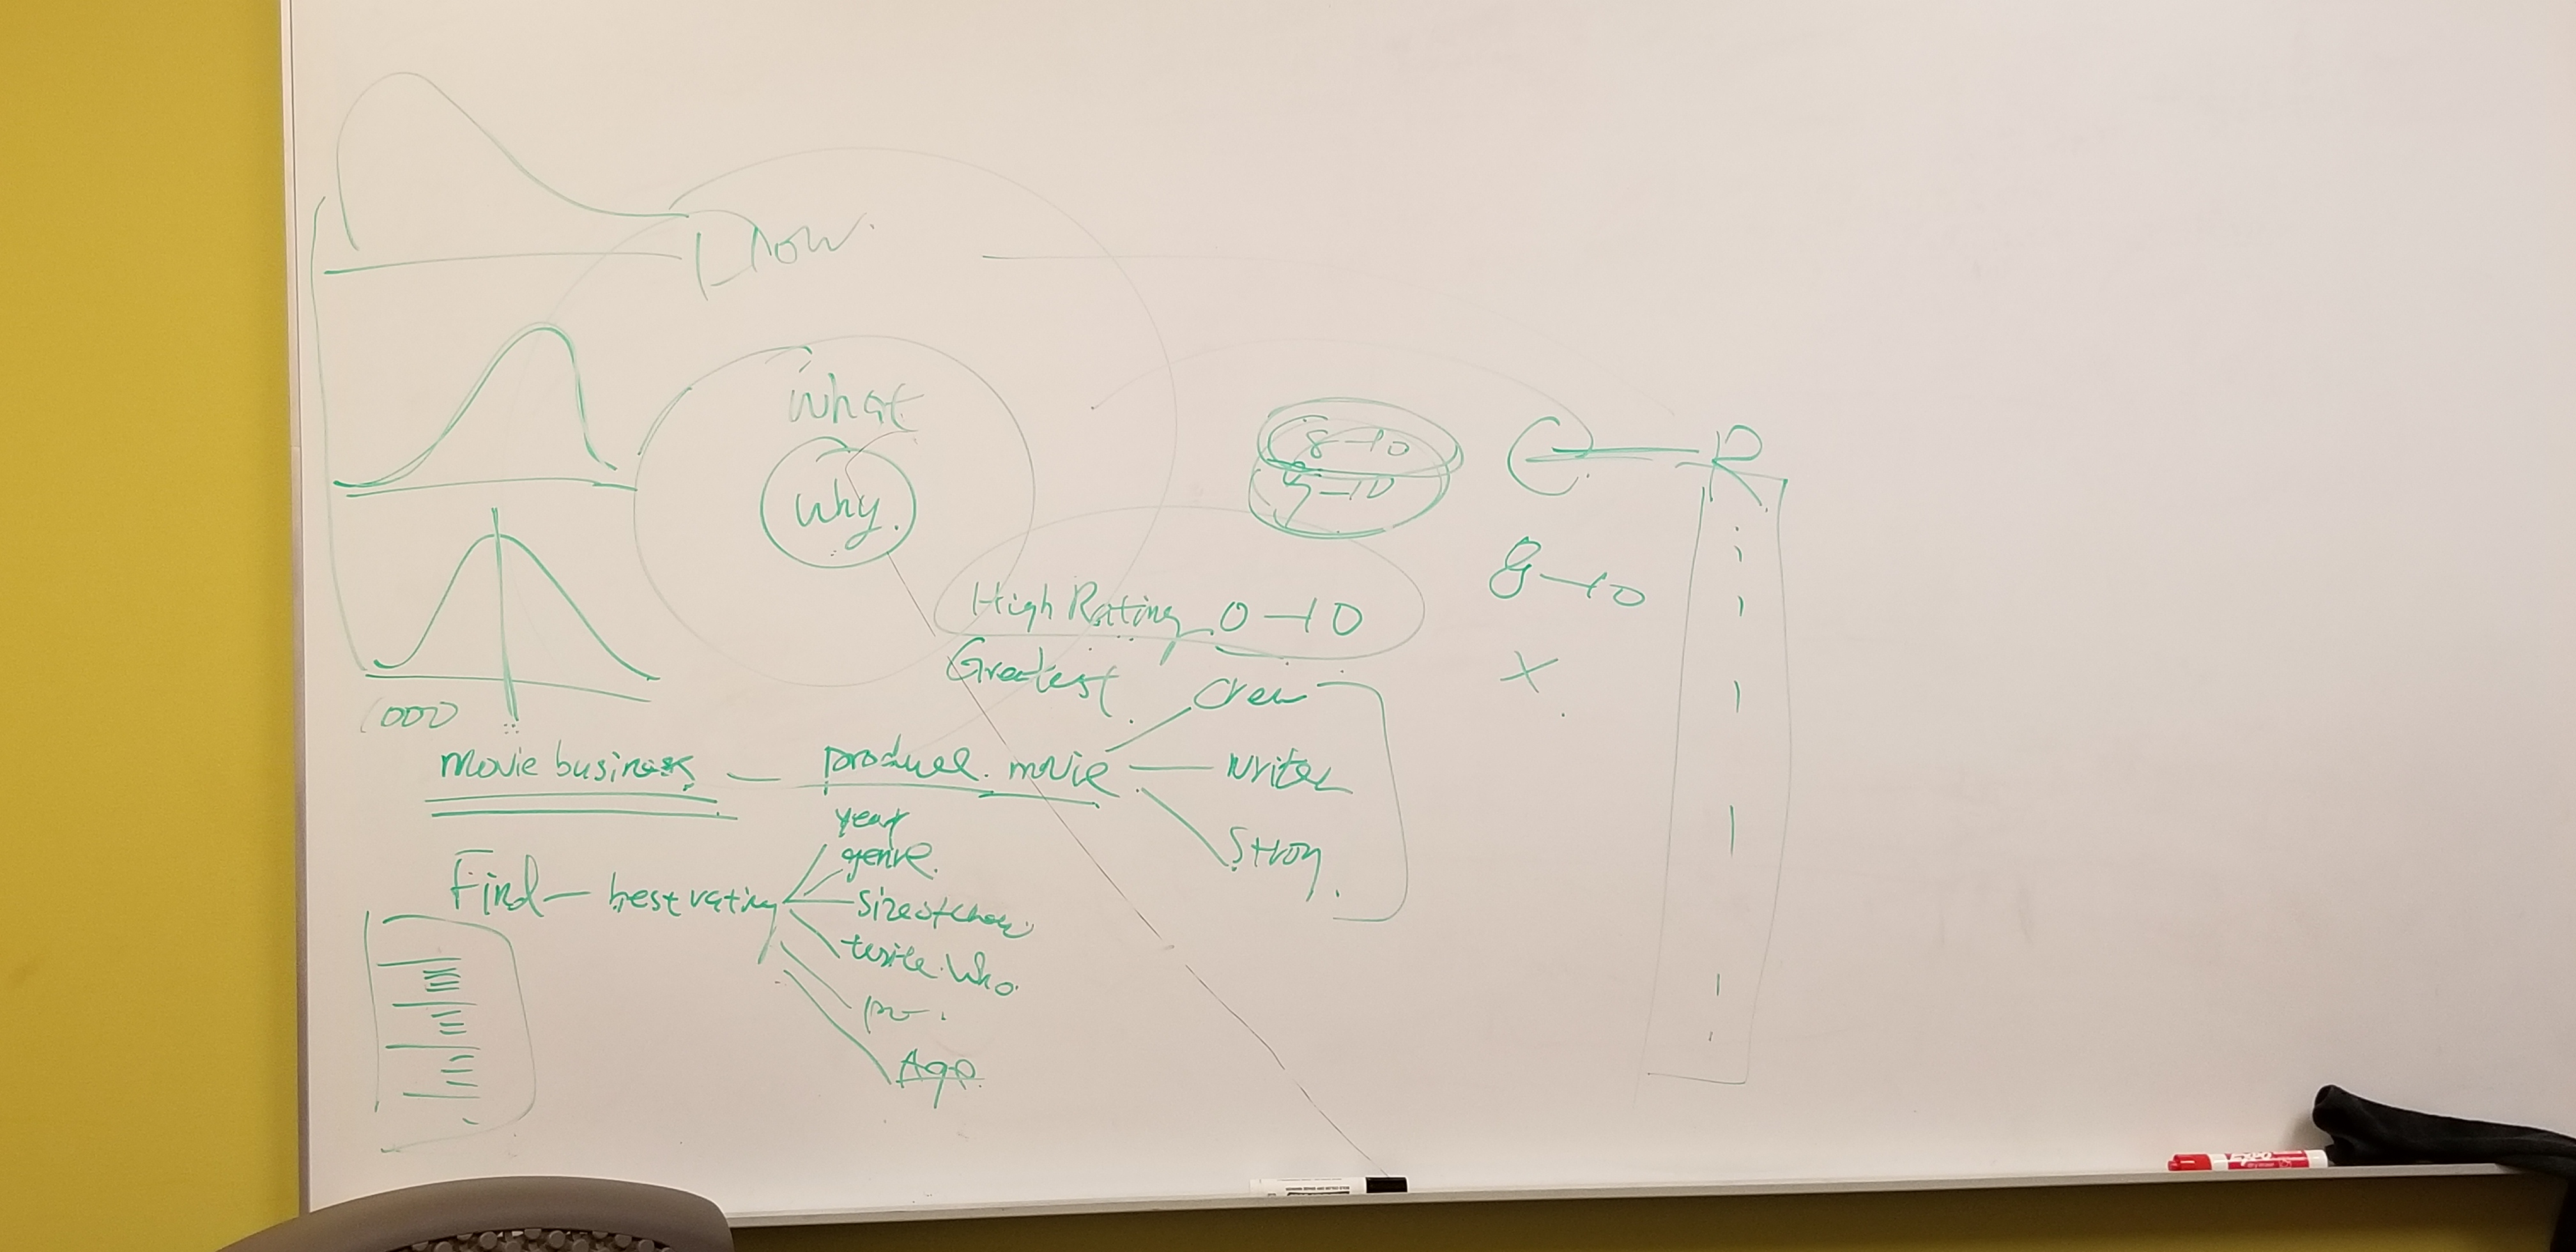 How.
what
why.
8-10
9-10
C R
8-10
High Rating 0-10
X
Greatest.
Crew
1000
movie business — produce movie
writer
Story
year
genre.
Find — best rating
size of
write. who.
Age
EXPO